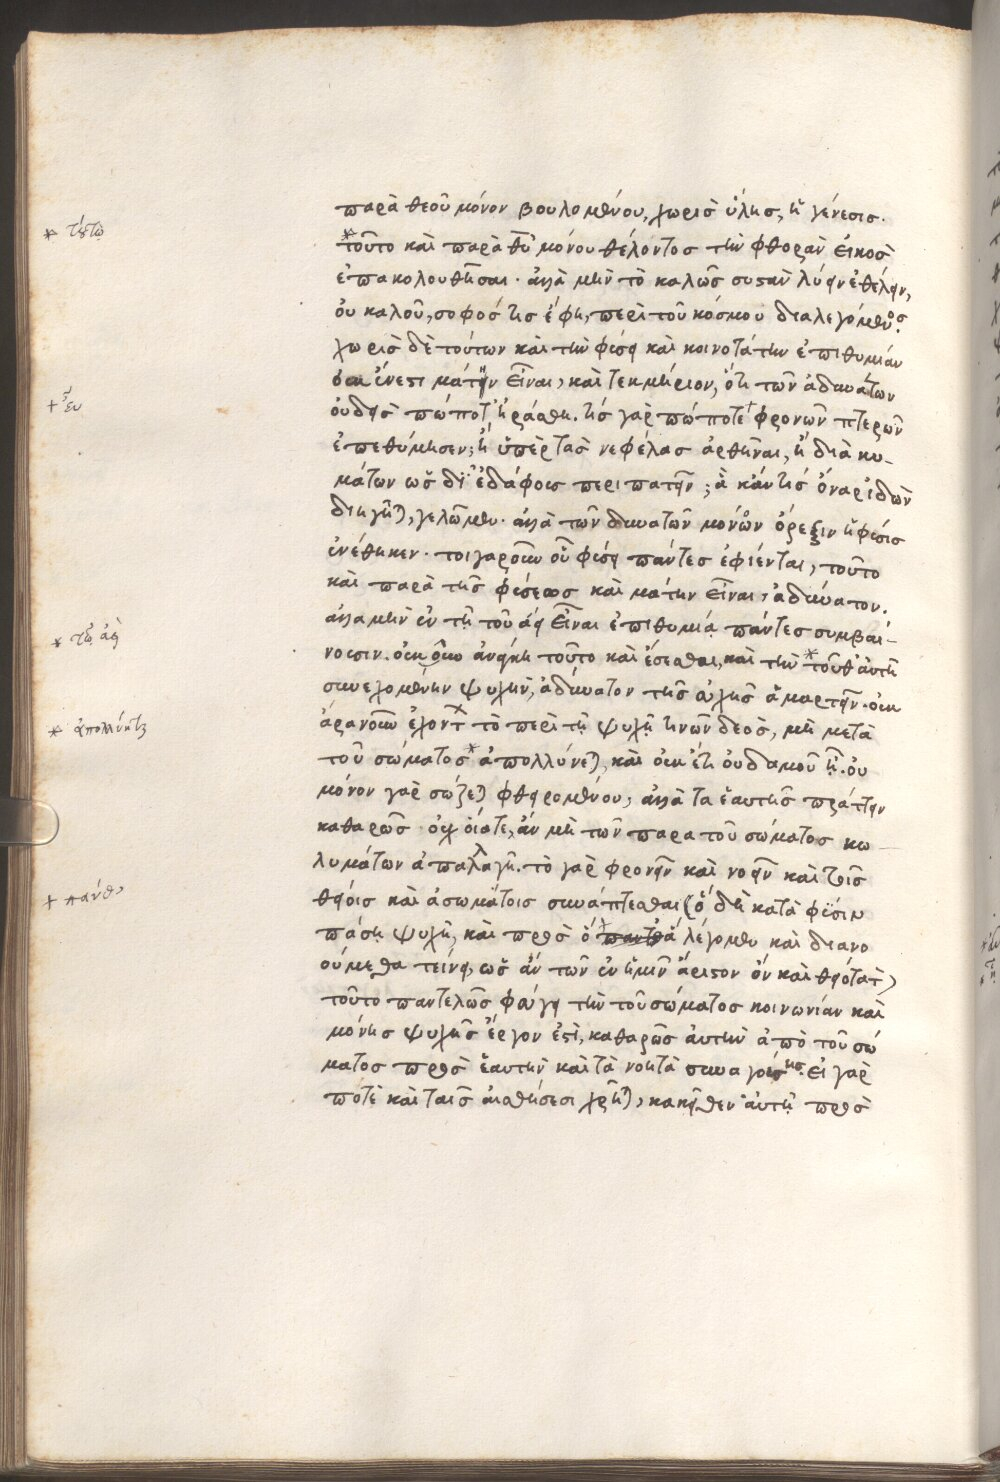 παρὰ θεοῦ μόνον βουλομένου, χωρὶς ὕλης, ἡ γένεσις.
* τούτω
*τοῦτο καὶ παρὰ θῦ μόνου θέλοντος τὴν φθορὰν εἰκὸς
ἐπακολουθῆσαι. ἀλλὰ μὴν τὸ καλῶς συστὰν λύειν ἐθέλειν,
οὐ καλοῦ, σοφός τις ἔφη, περὶ τοῦ κόσμου διαλεγόμενος.
χωρὶς δὲ τούτων καὶ τὴν φύσει καὶ κοινοτάτην ἐπιθυμίαν
οὐκ ἔνεστι μάτην εἶναι, καὶ τεκμήριον, ὅτι τῶν ἀδυνάτων
οὐδεὶς πώποτ' ἠράσθη. τίς γὰρ πώποτε φρονῶν πτερῶν
ἐπεθύμησεν; ἢ ὑπὲρ τὰς νεφέλας ἀρθῆναι, ἢ διὰ κυ-
μάτων ὡς δι' ἐδάφους περιπατεῖν; ἃ κἄν τις ὄναρ ἰδὼν
διηγῆται, γελῶμεν. ἀλλὰ τῶν δυνατῶν μόνων ὄρεξιν ἡ φύσις
ἐνέθηκεν. τοιγαροῦν οὗ φύσει πάντες ἐφίενται, τοῦτο
καὶ παρὰ τῆς φύσεως καὶ μάτην εἶναι, ἀδύνατον.
ἀλλὰ μὴν ἐν τῇ τοῦ ἀεὶ εἶναι ἐπιθυμίᾳ πάντες συμβαί-
* τῶ ἀεὶ
νουσιν. οὐκοῦν ἀνάγκη τοῦτο καὶ ἔσεσθαι, καὶ τὴν *τοῦθ' αὑτῇ
συνεχομένην ψυχὴν, ἀδύνατον τῆς εὐχῆς ἁμαρτεῖν. οὐκ
ἄρα νοῦν ἔχον τὸ περὶ τῇ ψυχῇ τινῶν δεὸς, μὴ μετὰ
τοῦ σώματος *ἀπολλύνεται, καὶ οὐκ ἔτι οὐδαμοῦ ᾖ. οὐ
μόνον γὰρ σώζεται φθειρομένου, ἀλλὰ τὰ ἑαυτῆς πράττειν
καθαρῶς οὐχ οἵα τε, ἂν μὴ τῶν παρὰ τοῦ σώματος κω-
λυμάτων ἀπαλλαγῇ. τὸ γὰρ φρονεῖν καὶ νοεῖν καὶ τοῖς
θείοις καὶ ἀσωμάτοις συνάπτεσθαι (ὃ δὴ κατὰ φύσιν
πάσῃ ψυχῇ, καὶ πρὸς ὃ πανθ' ἃ λέγομεν καὶ διανο
ούμεθα τείνει, ὡς ἂν τῶν ἐν ἡμῖν ἄριστον ὂν καὶ θειότατ)
τοῦτο παντελῶς φεύγει τὴν τοῦ σώματος κοινωνίαν καὶ
μόνης ψυχῆς ἔργον ἐστὶ, καθαρῶς αὑτὴν ἀπὸ τοῦ σώ
ματος πρὸς ἑαυτὴν καὶ τὰ νοητὰ συναγούσης. εἰ γάρ
ποτε καὶ ταῖς αἰσθήσεσι χρῆται, κἀκεῖθεν αὐτῇ πρὸς